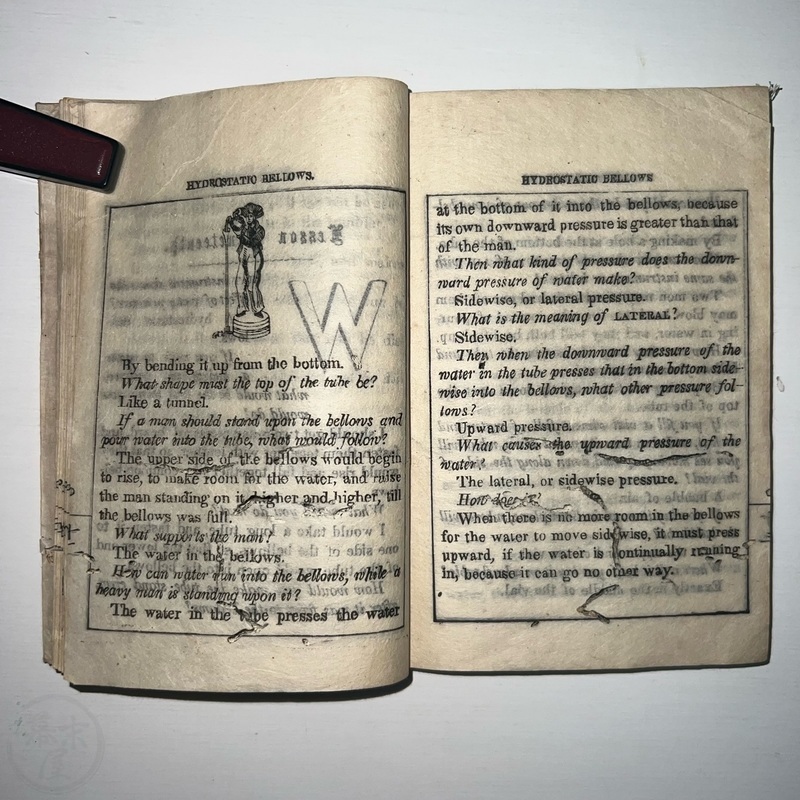 HYDROSTATIC BELLOWS.
W
By bending it up from the bottom.
What shape must the top of the tube be?
Like a tunnel.
If a man should stand upon the bellows and
pour water into the tube, what would follow?
The upper side of the bellows would begin
to rise, to make room for the water, and raise
the man standing on it higher and higher, till
the bellows was full.
What supports the man?
The water in the bellows.
How can water run into the bellows, while a
heavy man is standing upon it?
The water in the tube presses the water
HYDROSTATIC BELLOWS
at the bottom of it into the bellows, because
its own downward pressure is greater than that
of the man.
Then what kind of pressure does the down-
ward pressure of water make?
Sidewise, or lateral pressure.
What is the meaning of LATERAL?
Sidewise.
Then when the downward pressure of the
water in the tube presses that in the bottom side-
wise into the bellows, what other pressure fol-
lows?
Upward pressure.
What causes the upward pressure of the
water?
The lateral, or sidewise pressure.
How does it?
When there is no more room in the bellows
for the water to move sidewise, it must press
upward, if the water is continually running
in, because it can go no other way.